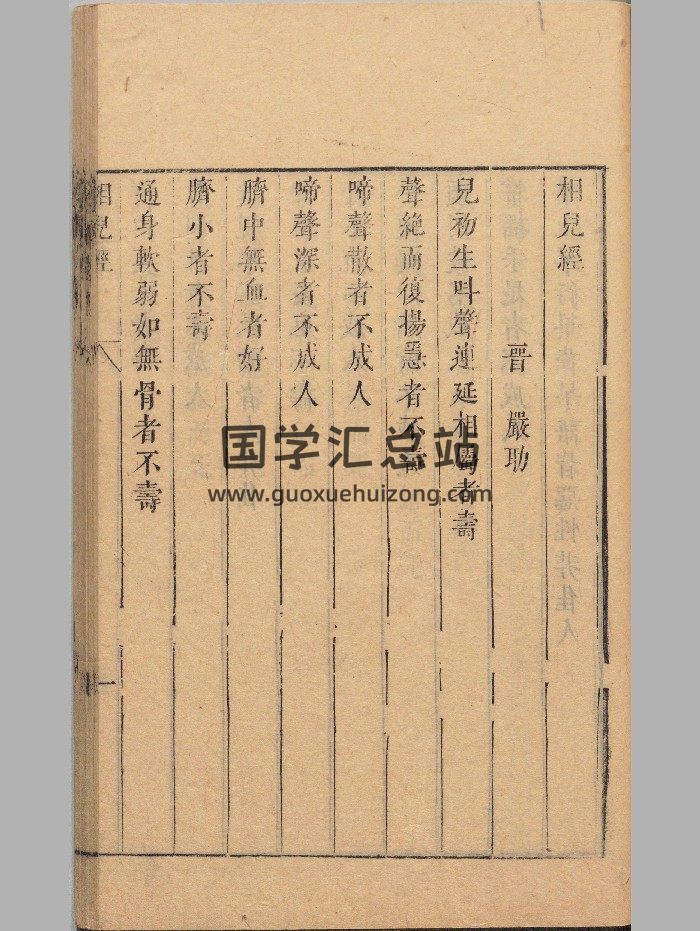 相兒經
晉 嚴助
兒初生叫聲連延相屬者壽
聲絕而復揚急者不壽
啼聲散者不成人
啼聲深者不成人
臍中無血者好
臍小者不壽
通身軟弱如無骨者不壽
相兒經
一
国学汇总站
www.guoxuehuizong.com